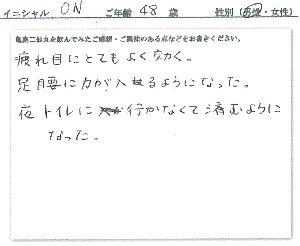 イニシャル ON ご年齢 48 歳 性別(男性・女性)
亀鹿二仙丸を飲んでみたご感想・ご興味のある点などをお書きください。
疲れ目にとてもよく効く。
足腰に力が入るようになった。
夜トイレに行かなくて済むように
なった。